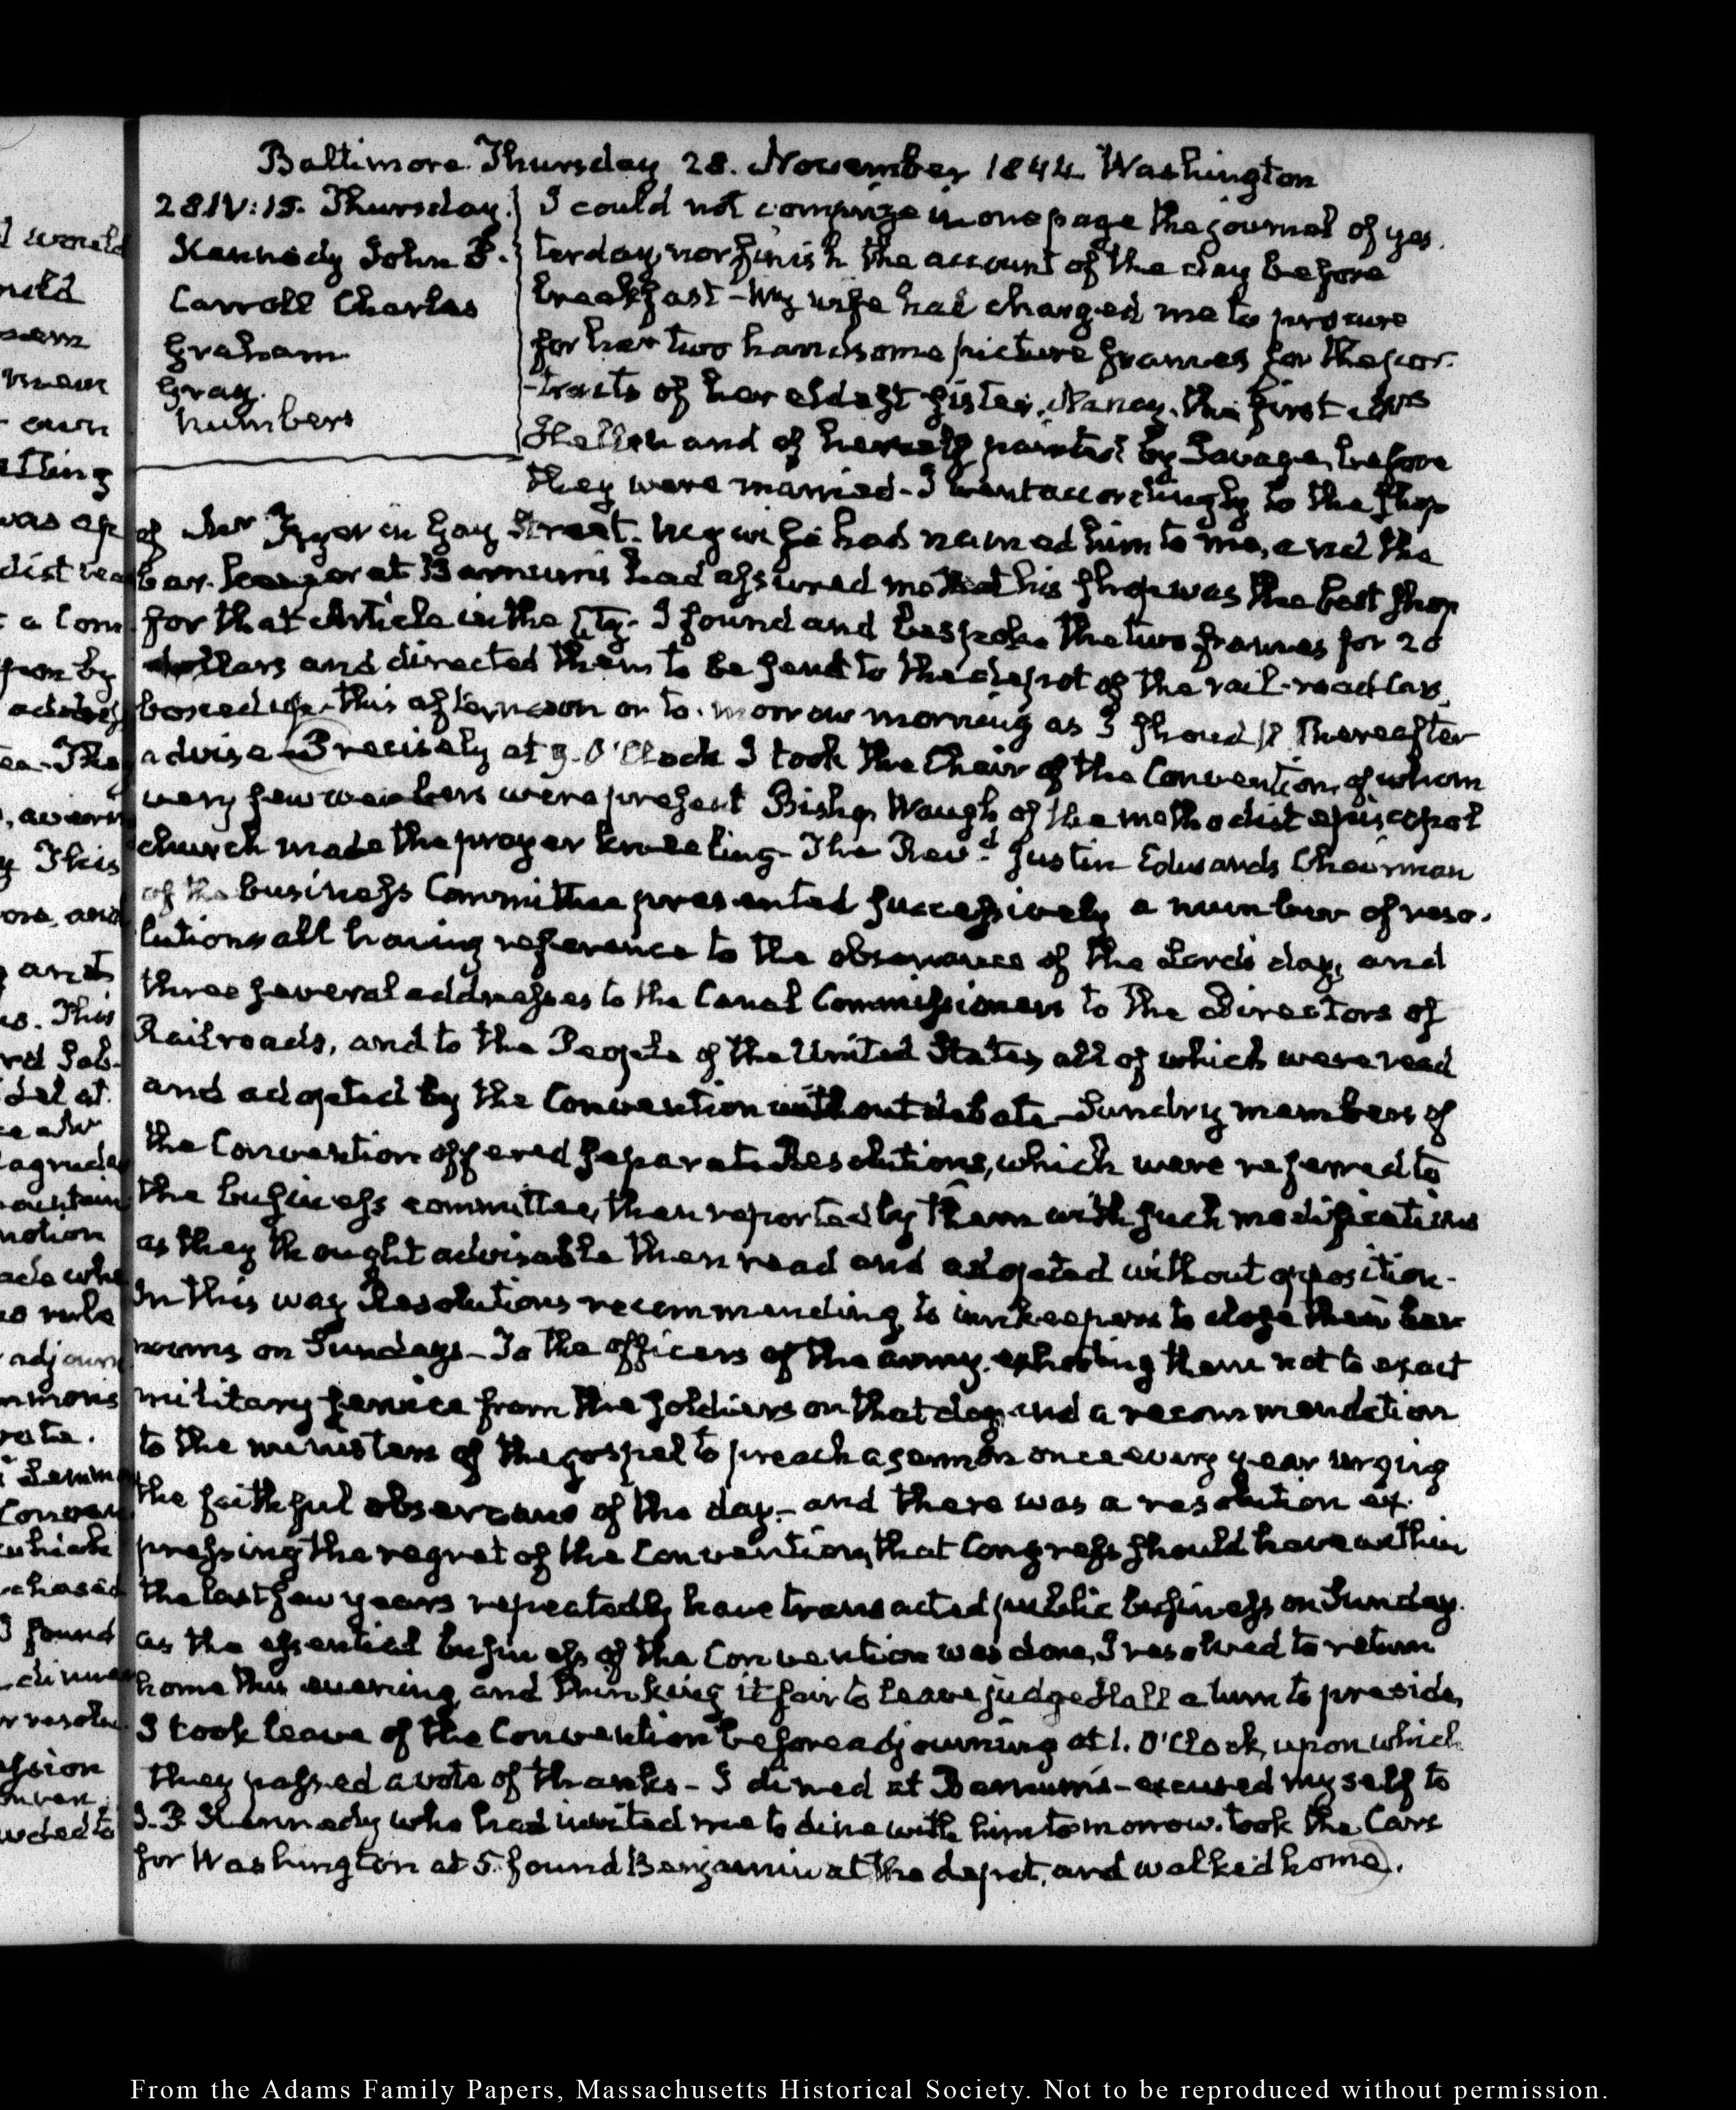 Baltimore Thursday 28. November 1844 Washington
28 IV:15. Thursday.
Kennedy John P.
Carroll Charles
Graham
Gray.
Numbers
I could not comprize in one page the journal of yes-
terday, nor finish the account of the day before
breakfast - My wife had charged me to procure
for her two handsome picture frames for the por-
-traits of her eldest sister, Nancy, the first Mrs
Hellen and of herself painted by Savage, before
they were married - I went accordingly to the shop
of Mr in Gay Street. my wife had named him to me, and the
bar-keeper at Barnum's had assured me that his shop was the best shop
for that Article in the City. I found and bespoke the two frames for 20
dollars and directed them to be send to the depot of the rail-road Cars,
boxed up. this afternoon or to-morrow morning as I should thereafter
advise - Precisely at 9. O'Clock I took the Chair of the Convention, of whom
very few members were present Bishop Waugh of the methodist episcopal
church made the prayer kneeling - The Revd. Justin Edwards Chairman
of the business Committee presented successively a number of reso-
lutions all having reference to the observance of the Lord's day, and
three several addresses to the Canal Commissioners to the Directors of
Railroads, and to the People of the United States, all of which were read
and adopted by the Convention without debate - Sundry members of
the Convention offered separate Resolutions, which were referred to
the business committee, then reported by them with such modifications
as they thought advisable then read and adopted without opposition -
In this way Resolutions recommending to innkeepers to close their bar
rooms on Sundays - To the officers of the army, exhorting them not to exact
military service from the soldiers on that day and a recommendation
to the ministers of the gospel to preach a sermon once every year urging
the faithful observance of the day - and there was a resolution ex-
pressing the regret of the Convention, that Congress should have within
the last few years repeatedly have transacted public business on Sunday.
as the essential business of the Convention was done, I resolved to return
home this evening, and thinking it fair to leave judge Hall a turn to preside,
I took leave of the Convention before adjourning at 1. O'Clock, upon which
they passed a vote of thanks - I dined at Barnum's - excused myself to
J. P. Kennedy who had invited me to dine with him to morrow. took the Cars
for Washington at 5. found Benjamin at the depot, and walked home.
From the Adams Family Papers, Massachusetts Historical Society. Not to be reproduced without permission.